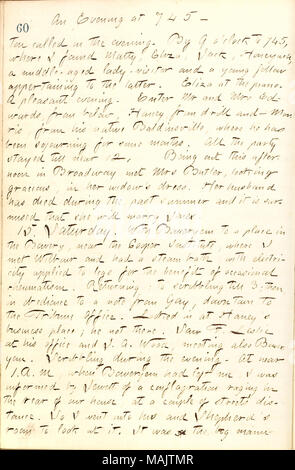 60
An Evening at 745 —
ton called in the evening. By 9 o'clock to 745,
where I found Matty, Eliza, Jack, Honeywell,
a middle-aged lady-visitor and a young fellow
appertaining to the latter. Eliza at the piano.
A pleasant evening. Enter Mr and Mrs Ed-
wards, from below. Haney from drill and Mor-
ris from his native Baldinsville, where he has
been sojourning for some months. All the party
stayed till near 12. Being out this after
noon in Broadway met Mrs Butler, looking
gracious, in her widow's dress. Her husband
has died during the past summer and it is sur-
mised that she will marry Jack.
15. Saturday. With Boweryem to a place in
the Bowery, near the Cooper Institute, where I
met Wilbur and had a steam bath with electri-
city applied to legs for the benefit of occasional
rheumatism. Returning to scribbling till 3; then
in obedience to a note from Gay, down town to
the Tribune Office. Looked in at Haney's
business place; he not there. Saw F. Leslie
at his office and J. A. Wood; meeting also Bower-
yem. Scribbling during the evening. At near
1. A.M. when Boweryem had left me, I was
informed by Jewett of a conflagration raging in
the rear of our house at a couple of streets dis-
tance. So I went into his and Shepherd's
room to look at it. It was the big manu-
alamy
MAJTMR